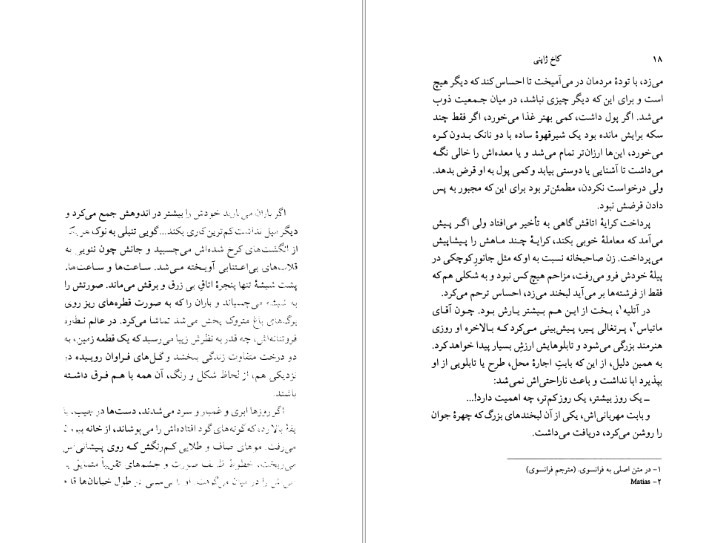 ۱۸ کاخ ژاپنی
می‌زد، با تودهٔ مردمان در می‌آمیخت تا احساس کند که دیگر هیچ
است و برای این که دیگر چیزی نباشد، در میان جمعیت ذوب
می‌شد. اگر پول داشت، کمی بهتر غذا می‌خورد، اگر فقط چند
سکه برایش مانده بود یک شیرقهوهٔ ساده با دو نانک بدون کره
می‌خورد، این‌ها ارزان‌تر تمام می‌شد و یا معده‌اش را خالی نگه
می‌داشت تا آشنایی یا دوستی بیابد وکمی پول به او قرض بدهد.
ولی درخواست نکردن، مطمئن‌تر بود برای این که مجبور به پس
دادن قرضش نبود.
پرداخت کرایهٔ اتاقش گاهی به تأخیر می‌افتاد ولی اگر پیش
می‌آمد که معاملهٔ خوبی بکند، کرایهٔ چند ماهش را پیشاپیش
می‌پرداخت. زن صاحبخانه نسبت به او که مثل جانور کوچکی در
پیلهٔ خودش فرو می‌رفت، مزاحم هیچ‌کس نبود و به شکلی هم که
فقط از فرشته‌ها بر می‌آید لبخند می‌زد، احساس ترحم می‌کرد.
در آتلیه۱، بخت از این هم بیشتر یارش بود. چون آقای
ماتیاس۲، پرتغالی پیر، پیش‌بینی می‌کرد که بالاخره او روزی
هنرمند بزرگی می‌شود و تابلوهایش ارزش بسیار پیدا خواهد کرد.
به همین دلیل، از این که بابت اجارهٔ محل، طرح یا تابلویی از او
بپذیرد ابا نداشت و باعث ناراحتی‌اش نمی‌شد:
ــ یک روز بیشتر، یک روز کم‌تر، چه اهمیت دارد!...
و بابت مهربانی‌اش، یکی از آن لبخندهای بزرگ که چهرهٔ جوان
را روشن می‌کرد، دریافت می‌داشت.
۱- در متن اصلی به فرانسوی. (مترجم فرانسوی)
۲- Matias
اگر باران می‌بارید خودش را بیشتر در اندوهش جمع می‌کرد و
دیگر میل نداشت کم‌ترین کاری بکند... گویی تنبلی به نوک هر یک
از انگشت‌های کرخ شده‌اش می‌چسبید و جانش چون ننویی به
قلاب‌های بی‌اعتنایی آویخته می‌شد. ساعت‌ها و ساعت‌ها،
پشت شیشهٔ تنها پنجرهٔ اتاق بی زرق و برقش می‌ماند. صورتش را
به شیشه می‌چسباند و باران را که به صورت قطره‌های ریز روی
برگ‌های باغ متروک پخش می‌شد تماشا می‌کرد. در عالم نظاره
چه قدر به نظرش زیبا می‌رسید که یک قطعه زمین، به
دو درخت متفاوت زندگی ببخشد و گل‌های فراوان روییده در
نزدیکی هم، از لحاظ شکل و رنگ، آن همه با هم فرق داشته
باشند.
اگر روزها ابری و غمبار و سرد می‌شدند، دست‌ها در جیب، با
یقهٔ بالا زده که گونه‌های گود افتاده‌اش را می‌پوشاند، از خانه بیرون
می‌رفت. موهای صاف و طلایی کم‌رنگش که روی پیشانی‌اش
می‌ریخت، خطوط ظریف صورت و چشم‌های تقریباً
را در میان می‌گرفت. در طول خیابان‌ها